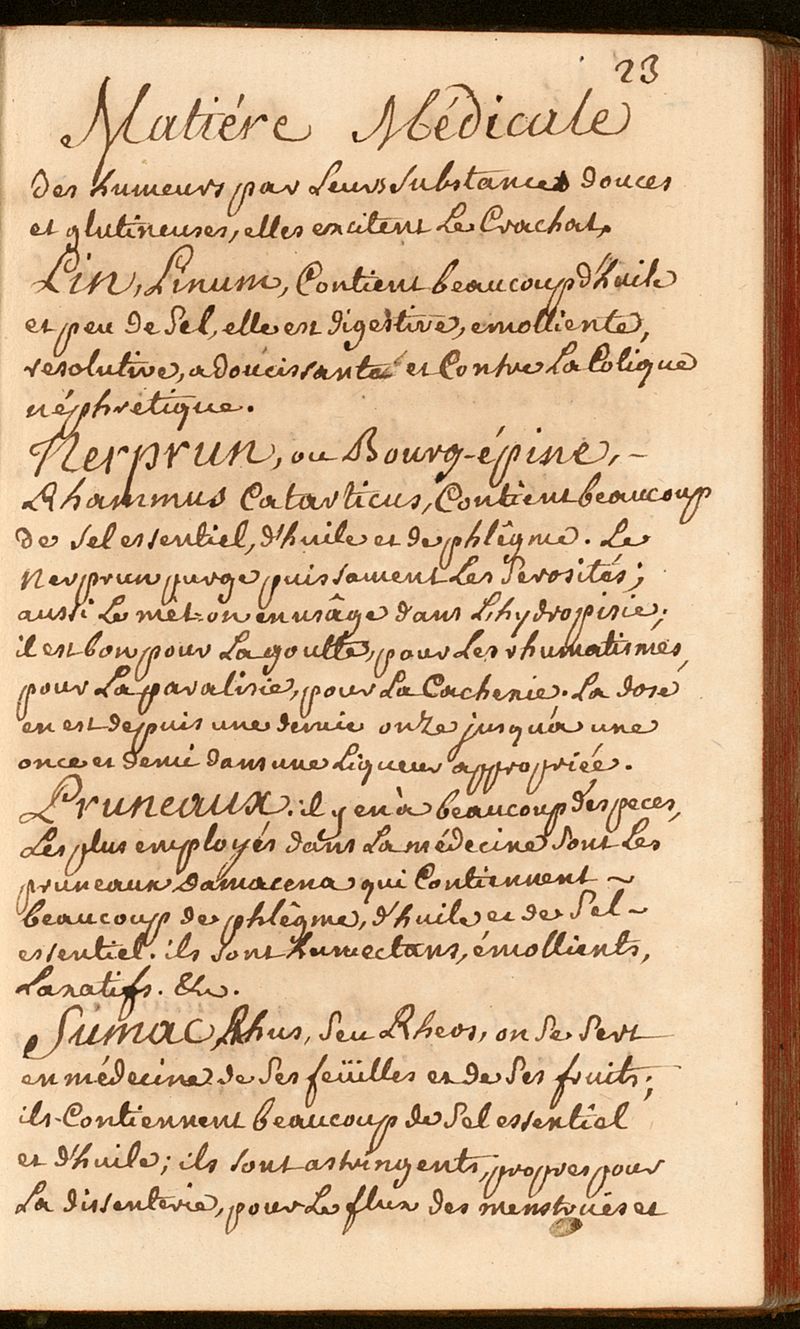 23
Matiére Médicale
des humeurs par Leurs substances douces
et glutineuses, elles excitent Le Crachat.
Lin, Linum, Contient beaucoup d'huile
et peu de Sel, elle est digestive, emolliente,
resolutive, adoucissante et Contre La Colique
néphretique.
Nerprun, ou Bourg-épine, -
Rhammus Catarticus, Contient beaucoup
de sel essentiel, d'huile et de phlêgme. Le
Nerprun purge puissament Les Serosités;
aussi Le met-on en usâge dans L'hydropisie;
il est bon pour La goutte, pour Les rhumatismes,
pour La paralisie, pour La Cachexie. La dose
en est depuis une demie onze jusqu'a une
once et demie dans une Liqueur appropriée.
Pruneaux. il y en à beaucoup d'especes,
Les plus employés dans La médecine Sont Les
pruneaux Damacena qui Contiennent ~
beaucoup de phlêgme, d'huile et de Sel ~
essentiel. ils sont humectans, émollients,
Laxatifs. &c.
Sumac, Rhus, seu Rheos, on Se Sert
en médecine de Ses feüilles et de Ses fruits;
ils Contiennent beaucoup de Sel essentiel
et d'huile; ils sont astringents, propres pour
La dissenterie, pour Le flux des menstruës et